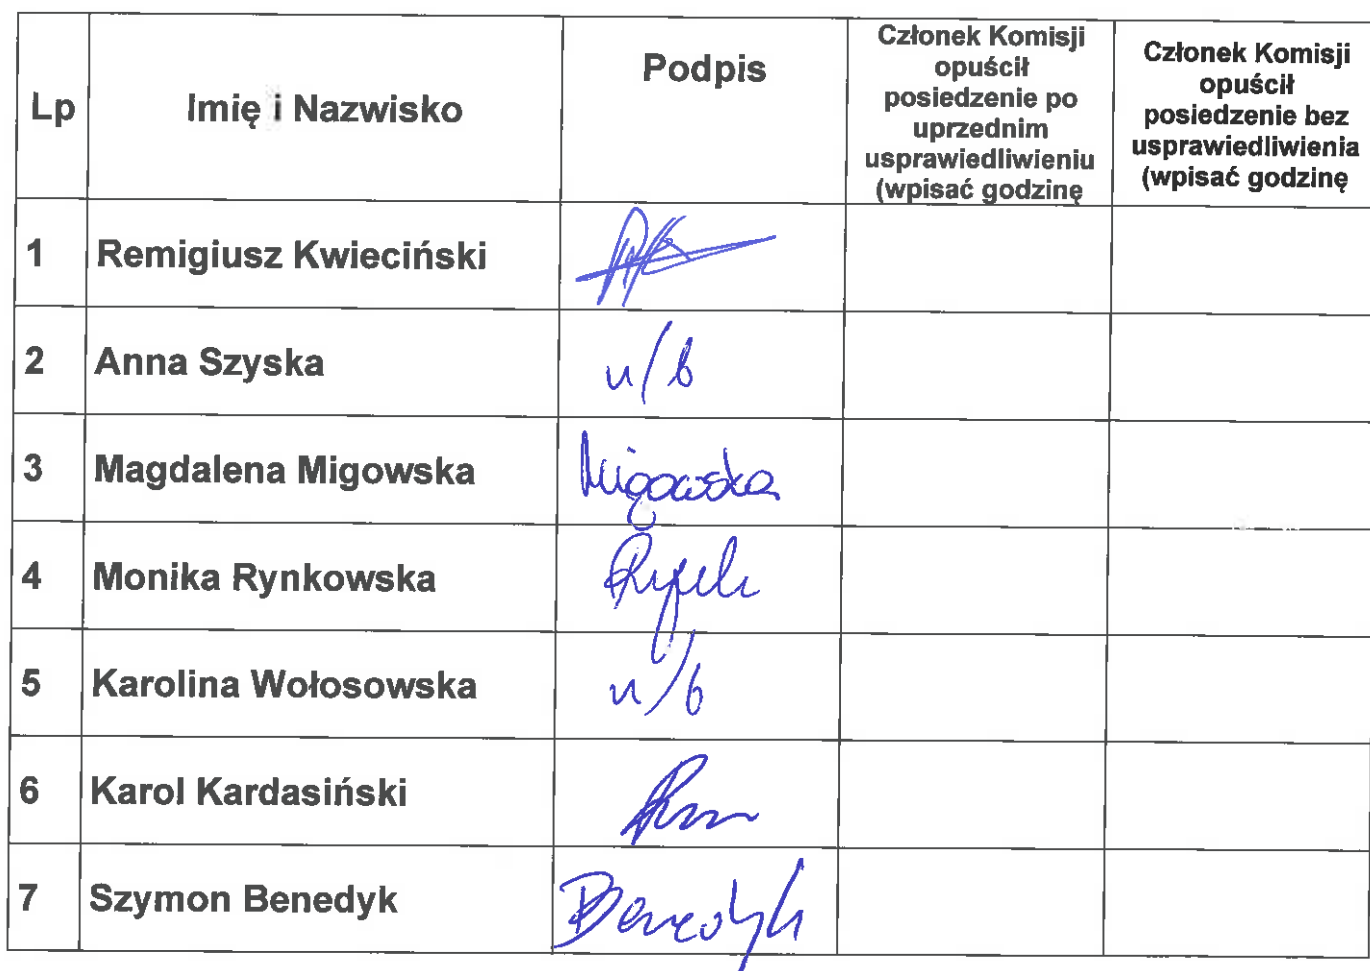 Lp
Imię i Nazwisko
Podpis
Członek Komisji
opuścił
posiedzenie po
uprzednim
usprawiedliwieniu
(wpisać godzinę
Członek Komisji
opuścił
posiedzenie bez
usprawiedliwienia
(wpisać godzinę
1 Remigiusz Kwieciński
2 Anna Szyska n/b
3 Magdalena Migowska Migowska
4 Monika Rynkowska
5 Karolina Wołosowska n/b
6 Karol Kardasiński
7 Szymon Benedyk Benedyk